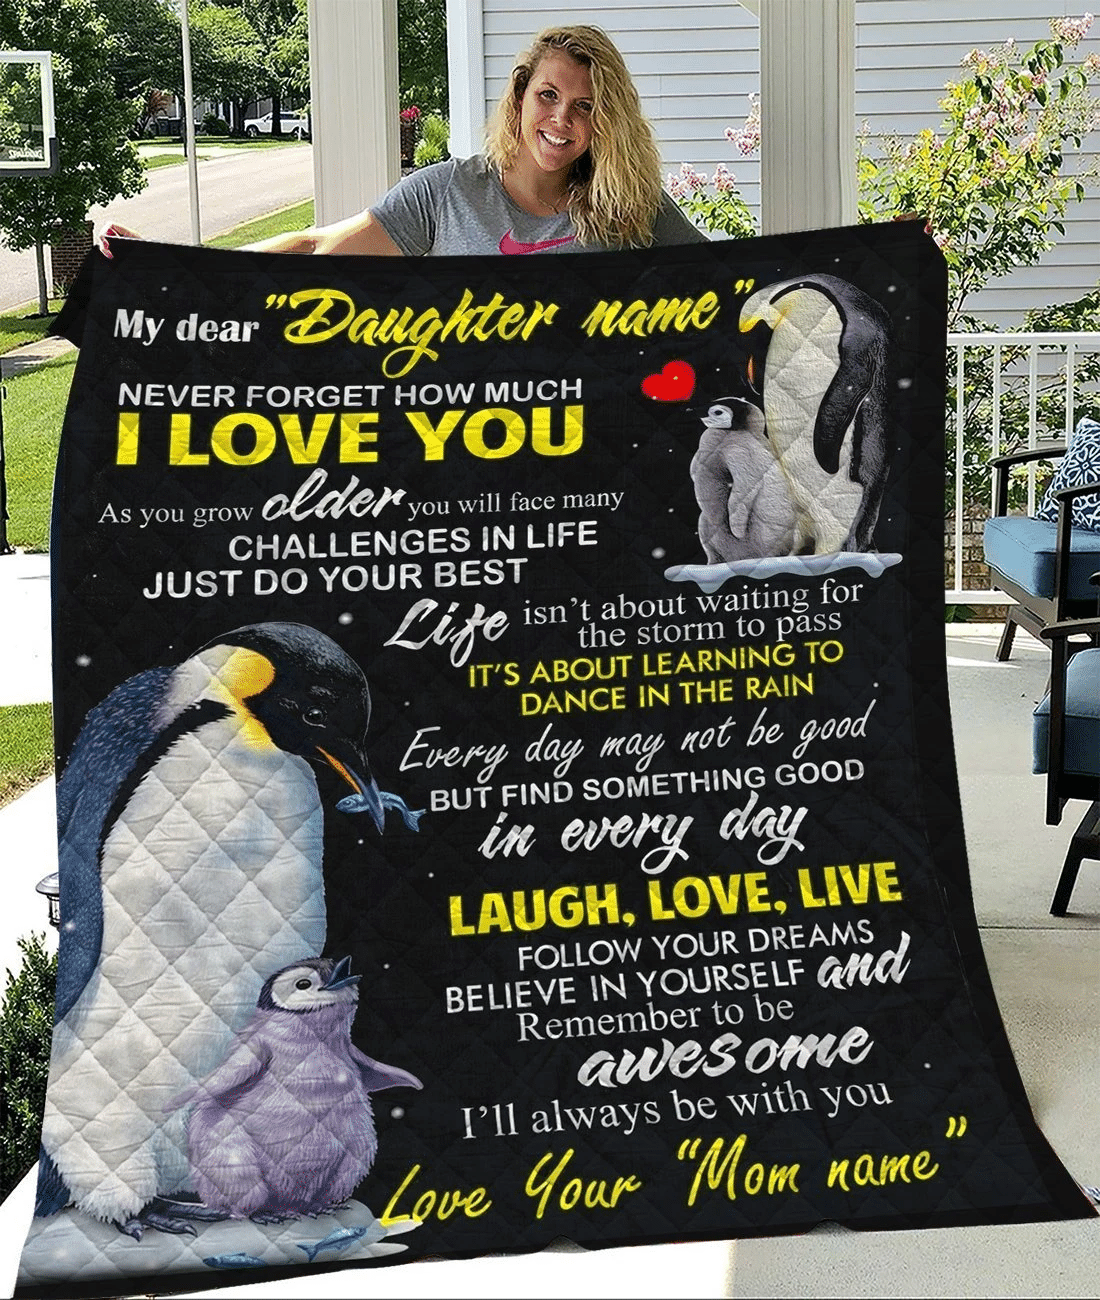 SPALDING
My dear "Daughter name"
NEVER FORGET HOW MUCH
I LOVE YOU
As you grow older you will face many
CHALLENGES IN LIFE
JUST DO YOUR BEST
Life isn't about waiting for
the storm to pass
IT'S ABOUT LEARNING TO
DANCE IN THE RAIN
Every day may not be good
BUT FIND SOMETHING GOOD
in every day
LAUGH, LOVE, LIVE
FOLLOW YOUR DREAMS
BELIEVE IN YOURSELF and
Remember to be
awesome
I'll always be with you
Love Your "Mom name"